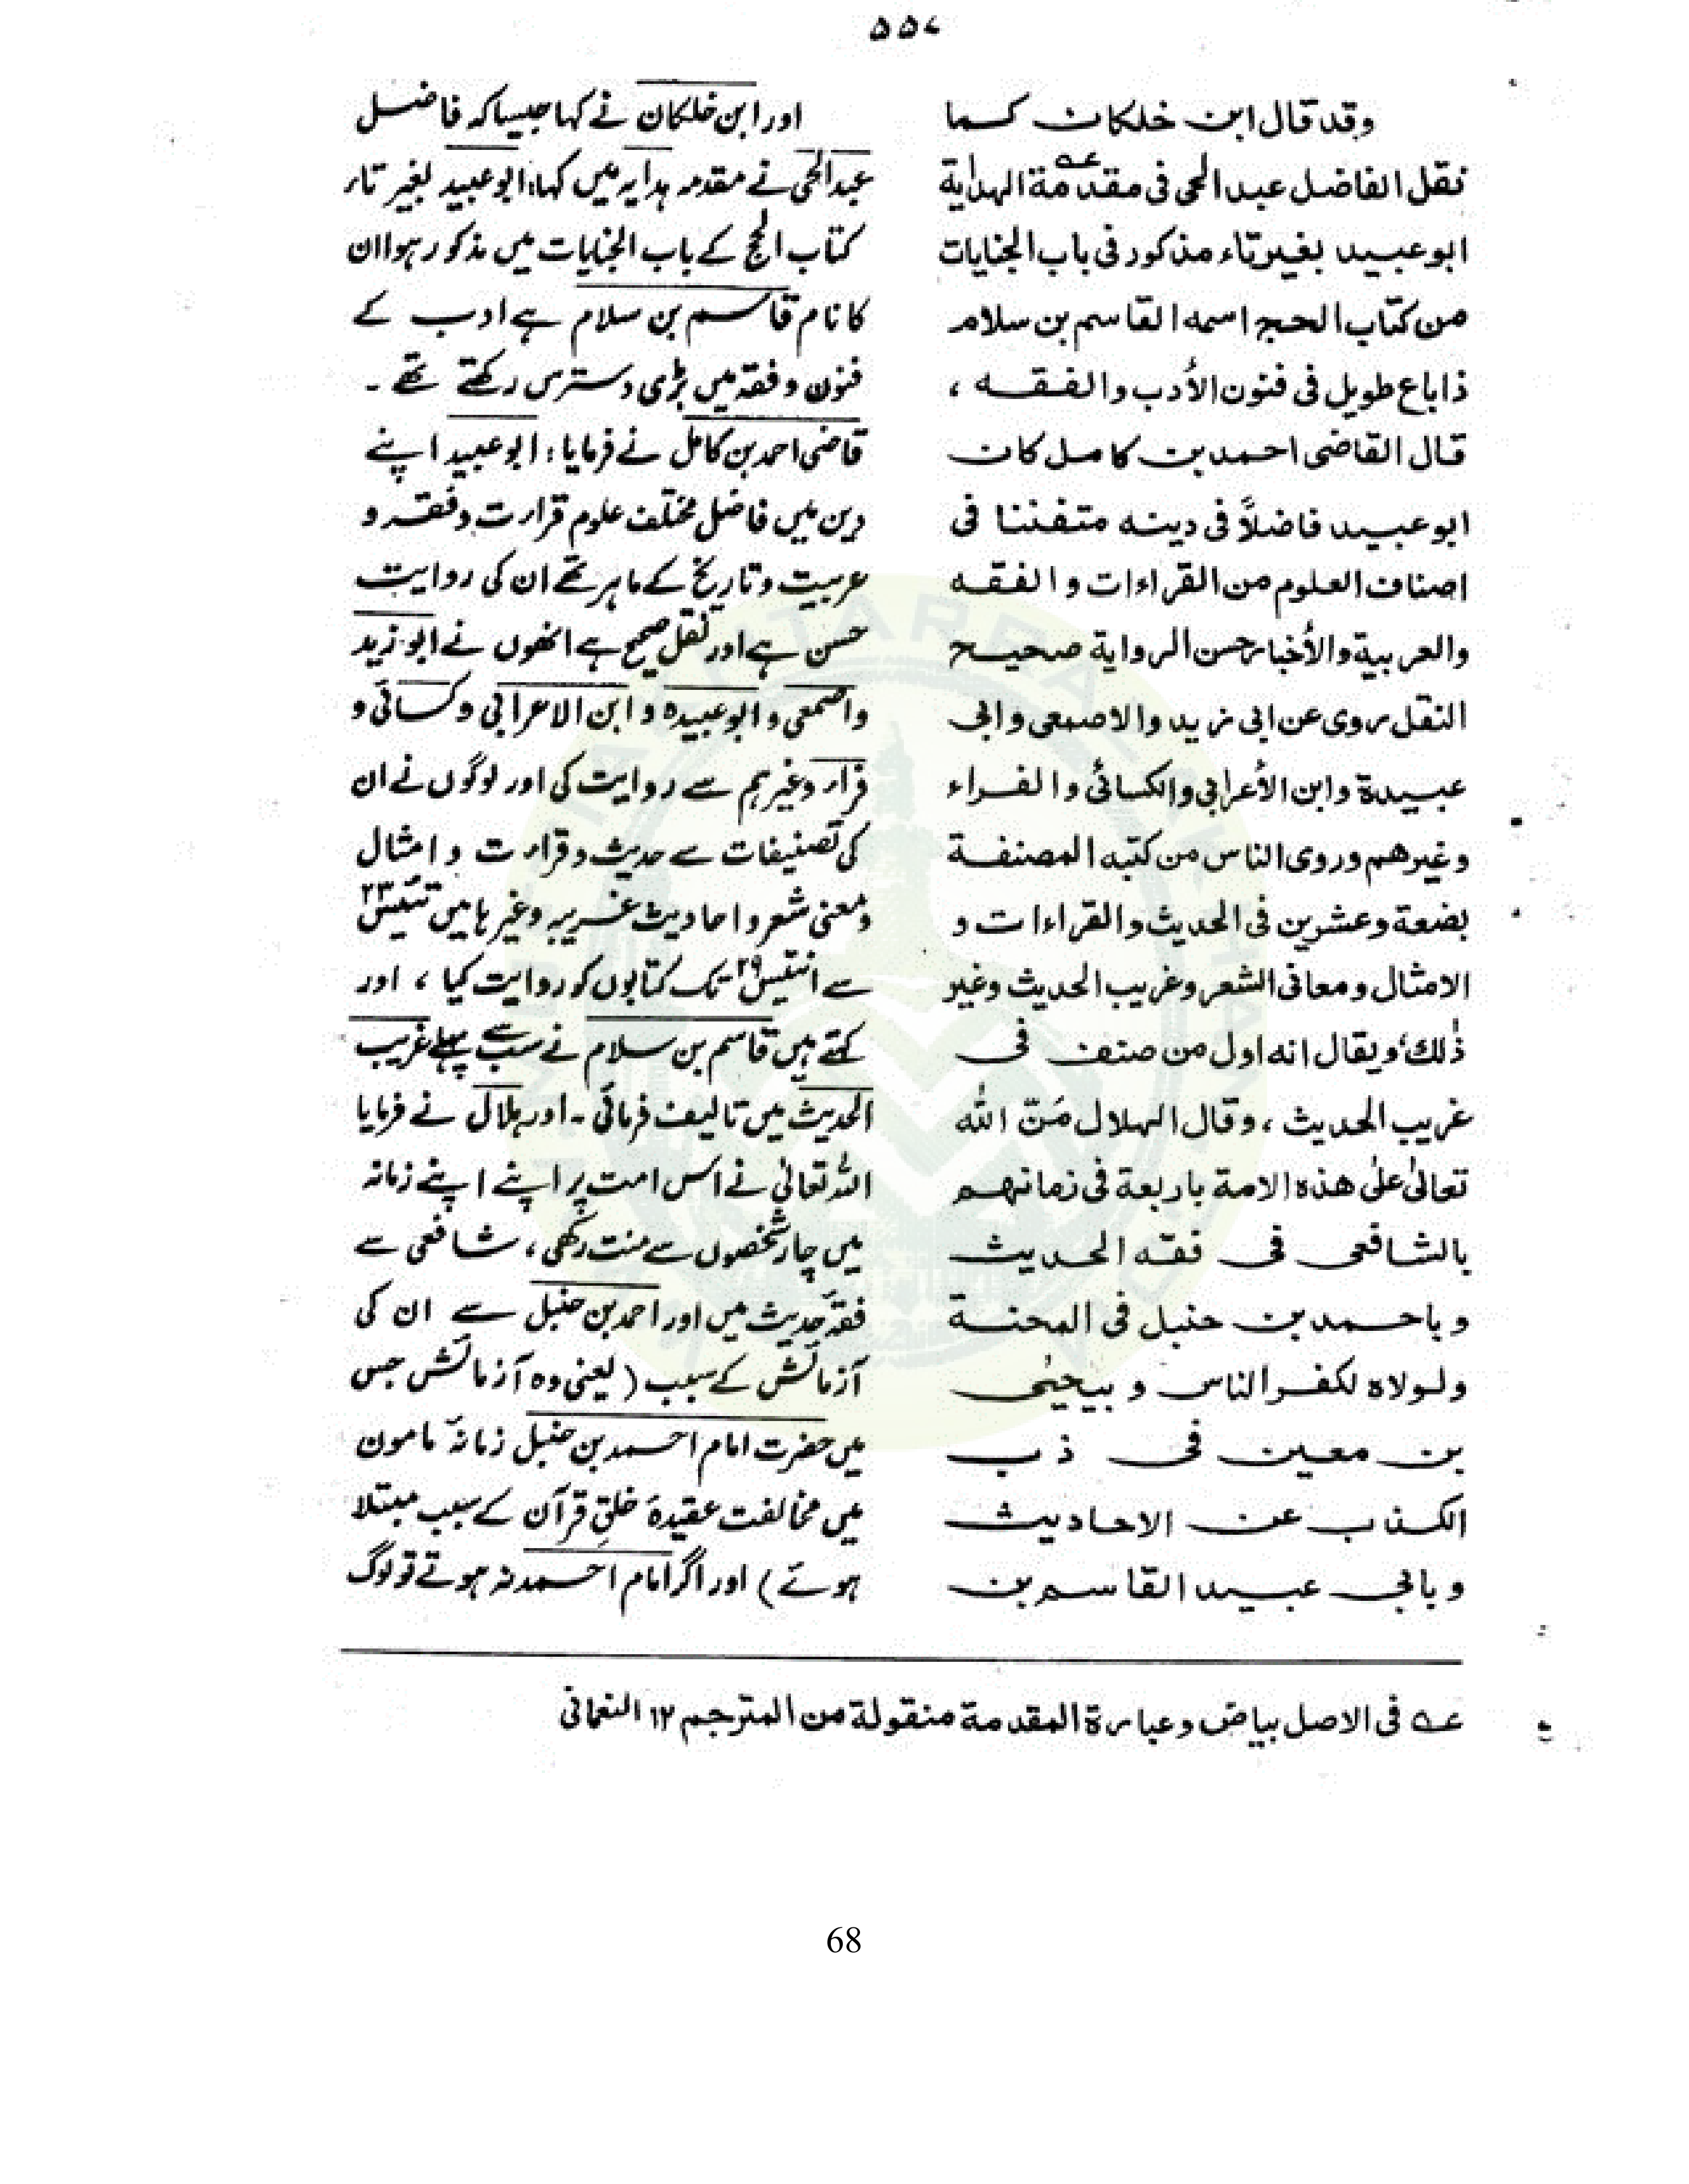 ۵۵۷
وقد قال ابن خلكان كما
نقل الفاضل عبد الحی فی مقدمة الهدایة عه
ابو عبید بغیر تاء مذکور فی باب الجنایات
من کتاب الحج اسمه القاسم بن سلام
ذا باع طویل فی فنون الأدب والفقه ،
قال القاضی احمد بن کامل کان
ابو عبید فاضلاً فی دینه متفننا فی
اصناف العلوم من القراءات والفقه
والعربیة والأخبار حسن الروایة صحیح
النقل روی عن ابی زید والاصمعی وابی
عبیدة وابن الأعرابی والکسائی والفراء
وغیرهم وروی الناس من کتبه المصنفة
بضعة وعشرین فی الحدیث والقراءات و
الامثال ومعانی الشعر وغریب الحدیث وغیر
ذٰلك، ویقال انه اول من صنف فی
غریب الحدیث ، وقال الهلال مَنّ الله
تعالیٰ علیٰ هذه الامة باربعة فی زمانهم
بالشافعی فی فقه الحدیث
وباحمد بن حنبل فی المحنة
ولولاه لکفر الناس و بیحیٰی
بن معین فی ذب
الکذب عن الاحادیث
وبابی عبید القاسم بن
اور ابن خلکان نے کہا جیسا کہ فاضل
عبدالحی نے مقدمہ ہدایہ میں کہا: ابو عبید بغیر تار
کتاب الحج کے باب الجنایات میں مذکور ہوا ان
کا نام قاسم بن سلام ہے ادب کے
فنون و فقہ میں بڑی دسترس رکھتے تھے ۔
قاضی احمد بن کامل نے فرمایا: ابو عبید اپنے
دین میں فاضل مختلف علوم قرارت و فقہ و
عربیت و تاریخ کے ماہر تھے ان کی روایت
حسن ہے اور نقل صحیح ہے انھوں نے ابو زید
و اصمعی و ابو عبیدہ و ابن الاعرابی و کسائی و
فرار وغیرہم سے روایت کی اور لوگوں نے ان
کی تصنیفات سے حدیث و قرارت و امثال
و معنی شعر و احادیث غریبہ وغیرہا میں تئیس ۲۳
سے انتیس ۲۹ تک کتابوں کو روایت کیا ، اور
کہتے ہیں قاسم بن سلام نے سب سے پہلے غریب
الحدیث میں تالیف فرمائی ۔ اور ہلال نے فرمایا
اللہ تعالیٰ نے اس امت پر اپنے اپنے زمانہ
میں چار شخصوں سے منت رکھی ، شافعی سے
فقہ حدیث میں اور احمد بن حنبل سے ان کی
آزمائش کے سبب (یعنی وہ آزمائش جس
میں حضرت امام احمد بن حنبل زمانۂ مامون
میں مخالفت عقیدۂ خلقِ قرآن کے سبب مبتلا
ہوئے) اور اگر امام احمد نہ ہوتے تو لوگ
عه فی الاصل بیاض وعبارة المقدمة منقولة من المترجم ۱۲ النعمانی
68